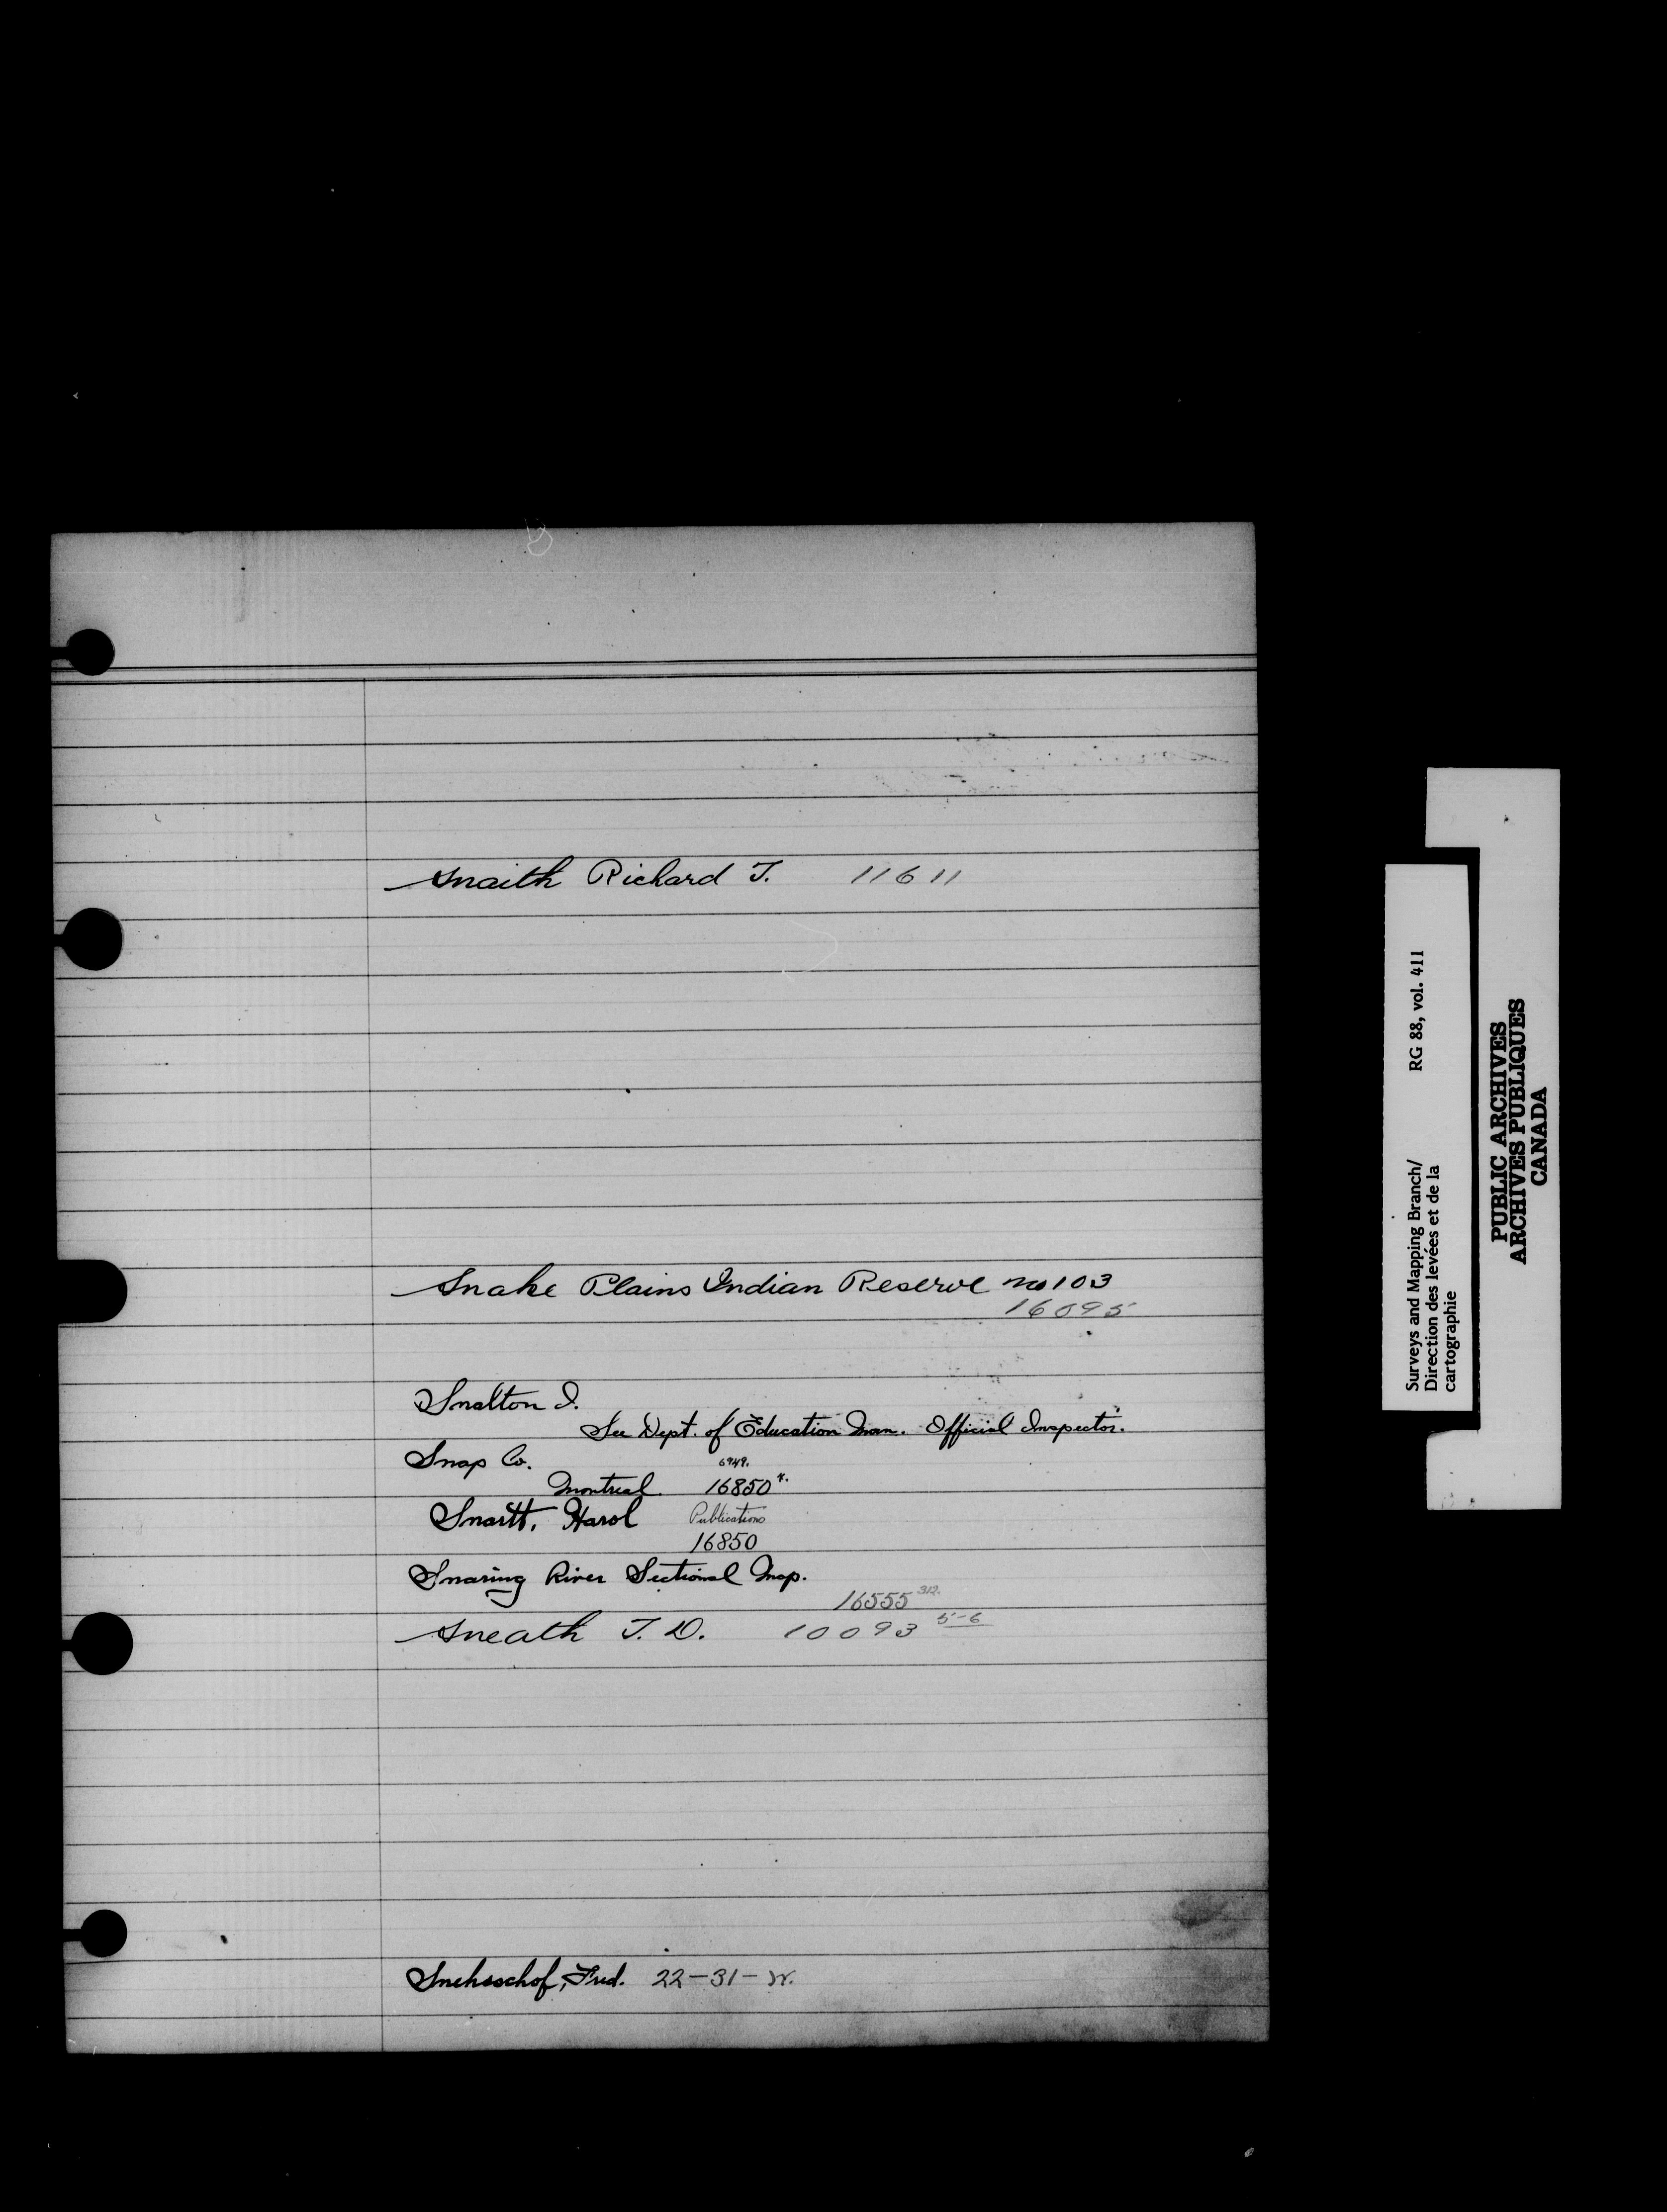 Snaith Richard T. 11611
Snake Plains Indian Reserve No 103
16095
Snalton I.
See Dept. of Education Man. Official Inspector.
Snap Co. 6949.
Montreal 16850 4.
Snartt, Harol Publications
16850
Snaring River Sectional Map.
16555 312.
Sneath T. D. 10093 5-6
Snehsschof, Fred. 22-31-W.
Surveys and Mapping Branch/ RG 88, vol. 411
Direction des levées et de la
cartographie
PUBLIC ARCHIVES
ARCHIVES PUBLIQUES
CANADA